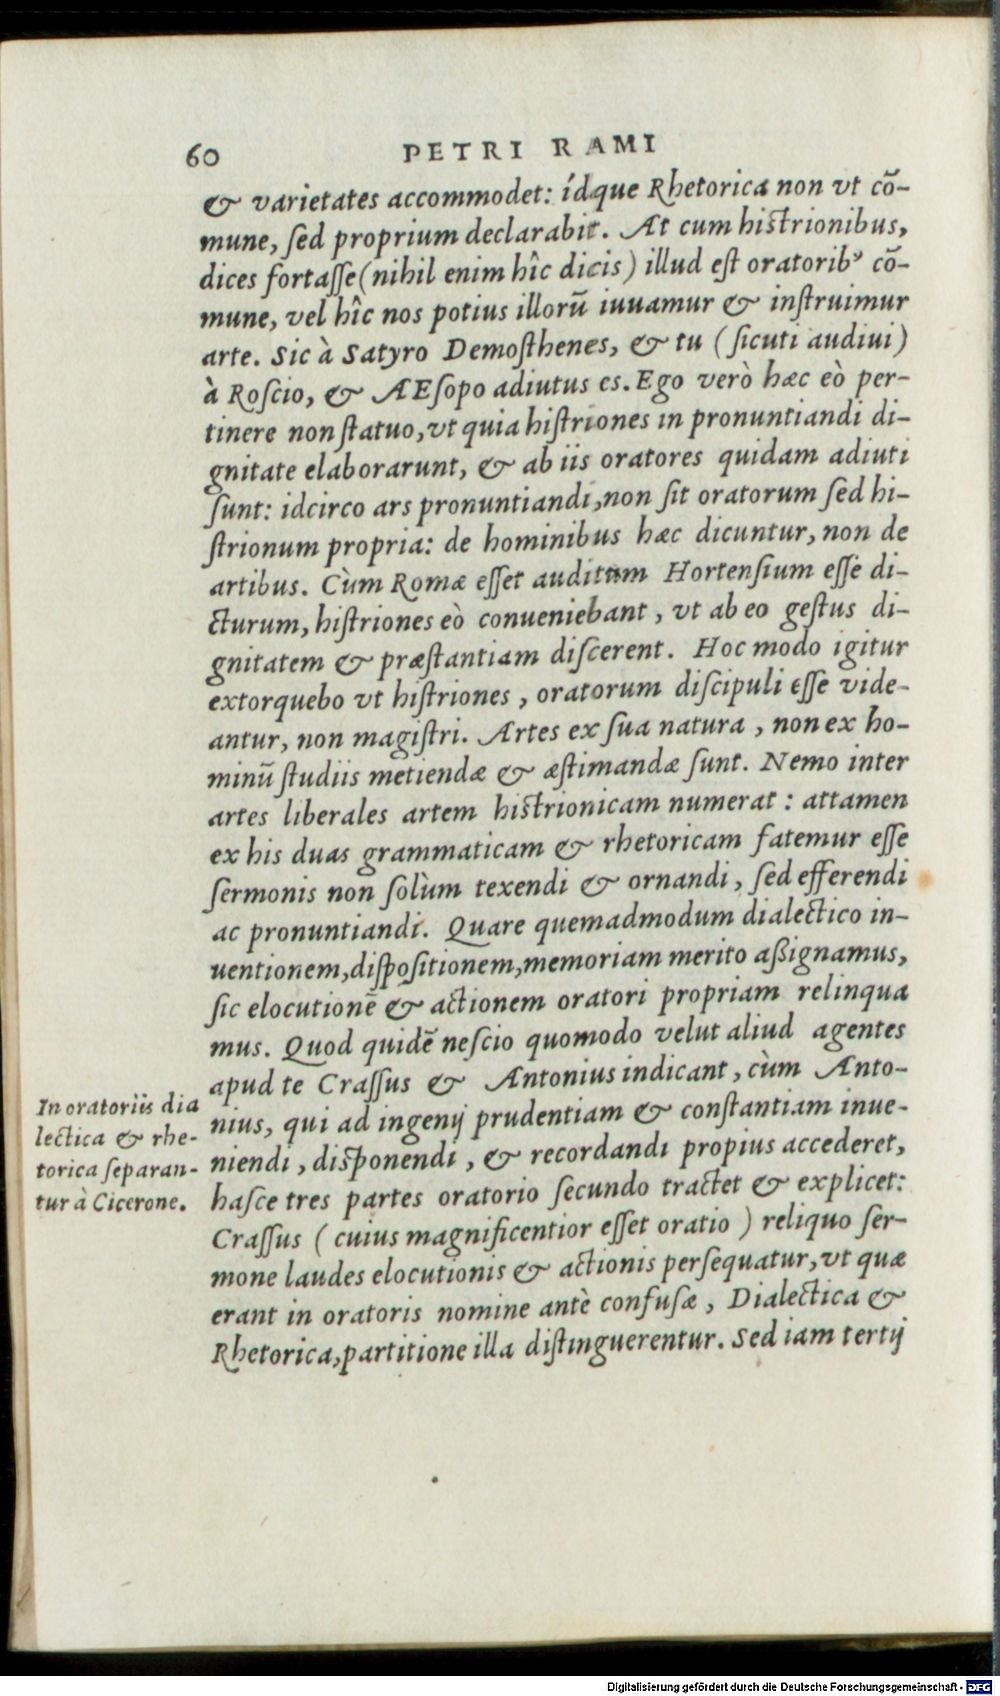 60 PETRI RAMI
& varietates accommodet: ídque Rhetorica non vt cō-
mune, ſed proprium declarabit. At cum hiſtrionibus,
dices fortaſſe (nihil enim hîc dicis) illud eſt oratoribꝰ cō-
mune, vel hîc nos potius illorū iuuamur & inſtruimur
arte. Sic à Satyro Demoſthenes, & tu (ſicuti audiui)
à Roſcio, & AEſopo adiutus es. Ego verò hæc eò per-
tinere non ſtatuo, vt quia hiſtriones in pronuntiandi di-
gnitate elaborarunt, & ab iis oratores quidam adiuti
ſunt: idcirco ars pronuntiandi, non ſit oratorum ſed hi-
ſtrionum propria: de hominibus hæc dicuntur, non de
artibus. Cùm Romæ eſſet auditum Hortenſium eſſe di-
cturum, hiſtriones eò conueniebant, vt ab eo geſtus di-
gnitatem & præſtantiam diſcerent. Hoc modo igitur
extorquebo vt hiſtriones, oratorum diſcipuli eſſe vide-
antur, non magiſtri. Artes ex ſua natura, non ex ho-
minū ſtudiis metiendæ & æſtimandæ ſunt. Nemo inter
artes liberales artem hiſtrionicam numerat: attamen
ex his duas grammaticam & rhetoricam fatemur eſſe
ſermonis non ſolùm texendi & ornandi, ſed efferendi
ac pronuntiandi. Quare quemadmodum dialectico in-
uentionem, diſpoſitionem, memoriam merito aßignamus,
ſic elocutionē & actionem oratori propriam relinqua
mus. Quod quidē neſcio quomodo velut aliud agentes
apud te Craſſus & Antonius indicant, cùm Anto-
nius, qui ad ingenij prudentiam & conſtantiam inue-
niendi, diſponendi, & recordandi propius accederet,
haſce tres partes oratorio ſecundo tractet & explicet:
Craſſus (cuius magnificentior eſſet oratio) reliquo ſer-
mone laudes elocutionis & actionis perſequatur, vt quæ
erant in oratoris nomine antè confuſæ, Dialectica &
Rhetorica, partitione illa diſtinguerentur. Sed iam tertij
In oratoriis dia
lectica & rhe-
torica ſeparan-
tur à Cicerone.
Digitalisierung gefördert durch die Deutsche Forschungsgemeinschaft - DFG